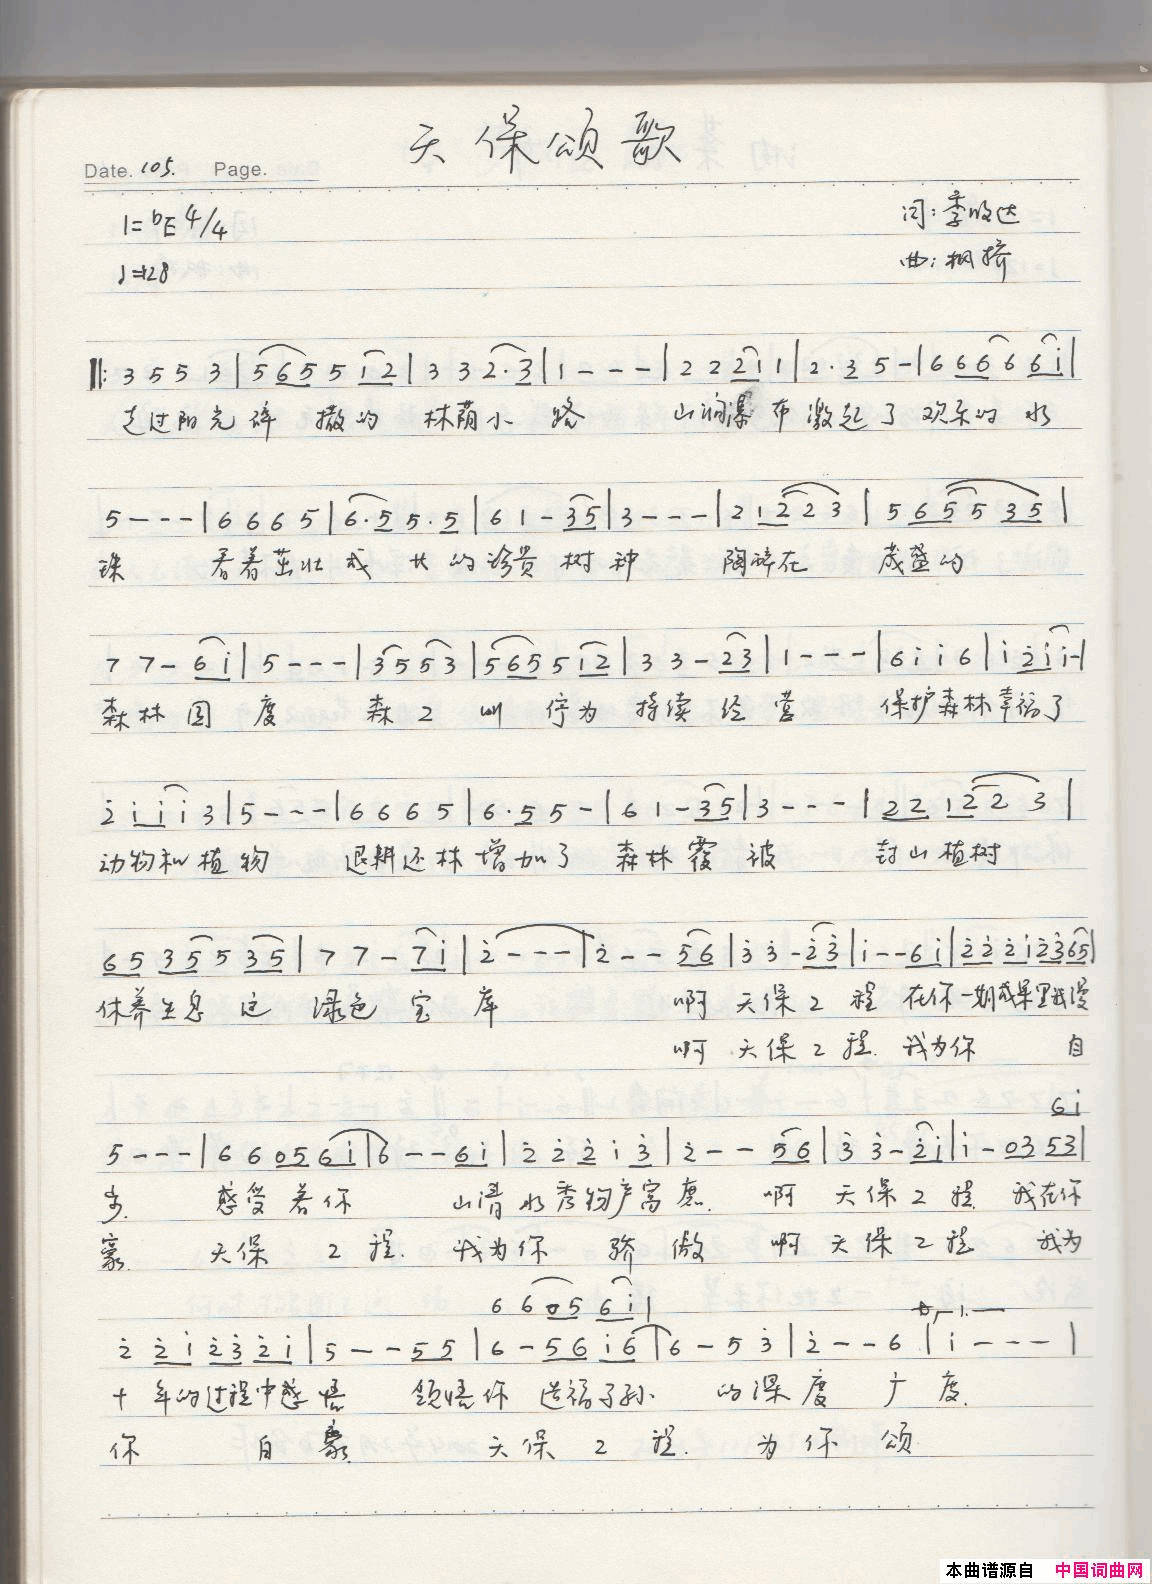 天保颂歌
Date. 105. Page.
1=bE 4/4
词：李收达
♩=128
曲：枫桥
‖: 3 5 5 3 | 5 6 5 5 i 2 | 3 3 2· 3 | 1 - - - | 2 2 2 1 1 | 2· 3 5 - | 6 6 6 6 6 i |
走过阳光碎 撒的 林荫小 路 山涧瀑布激起了欢乐的水
5 - - - | 6 6 6 5 | 6· 5 5· 5 | 6 1 - 3 5 | 3 - - - | 2 1 2 2 3 | 5 6 5 5 3 5 |
珠 看着茁壮成 长的珍贵树种 陶醉在 茂盛的
7 7 - 6 i | 5 - - - | 3 5 5 3 | 5 6 5 5 i 2 | 3 3 - 2 3 | 1 - - - | 6 i i 6 | i 2 i i - |
森林国 度 森工 伐为 持续经营 保护森林幸福了
2 i i i 3 | 5 - - - | 6 6 6 5 | 6· 5 5 - | 6 1 - 3 5 | 3 - - - | 2 2 1 2 2 3 |
动物和植物 退耕还林增加了 森林覆被 封山植树
6 5 3 5 5 3 5 | 7 7 - 7 i | 2 - - - | 2 - - 5 6 | 3 3 - 2 3 | i - - 6 i | 2 2 2 i 2 3 6 5 |
休养生息 这 绿色宝库 啊 天保工程 在你一期成果里我漫
啊 天保工程 我为你 自
6 i
5 - - - | 6 6 0 5 6 i | 6 - - 6 i | 2 2 2 i 3 | 2 - - 5 6 | 3 3 - 2 i | i - 0 3 5 3 |
步 感受着你 山清水秀物产富庶 啊 天保工程 我在你
豪 天保 工程 我为你 骄傲 啊 天保工程 我为
6 6 0 5 6 i |
2 2 i 2 3 2 i | 5 - - 5 5 | 6 - 5 6 i 6 | 6 - 5 3 | 2 - - 6 | i - - - |
十年的过程中感悟 领悟你 造福子孙 的深度 广度
你 自豪 天保工程 为你颂
本曲谱源自 中国词曲网